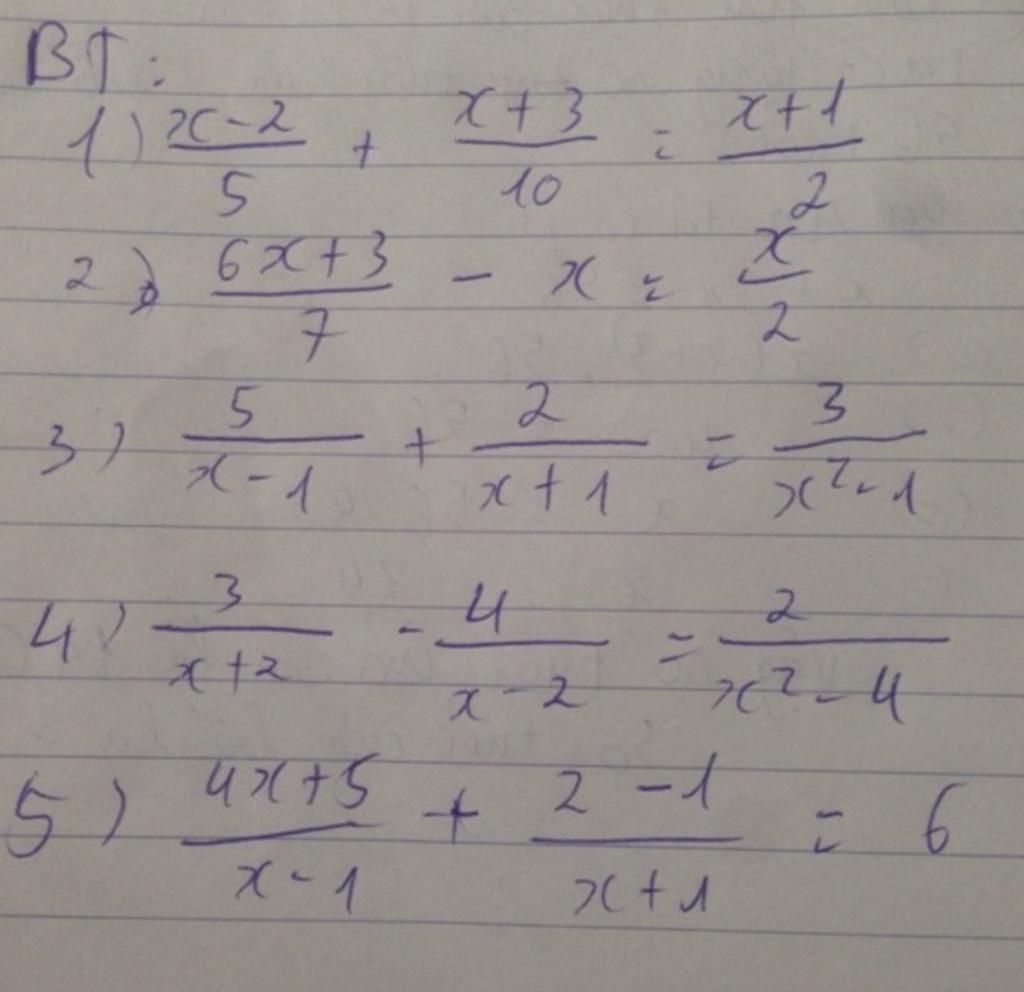 BT:
1) \frac{x-2}{5} + \frac{x+3}{10} = \frac{x+1}{2}
2) \frac{6x+3}{7} - x = \frac{x}{2}
3) \frac{5}{x-1} + \frac{2}{x+1} = \frac{3}{x^2-1}
4) \frac{3}{x+2} - \frac{4}{x-2} = \frac{2}{x^2-4}
5) \frac{4x+5}{x-1} + \frac{2-1}{x+1} = 6